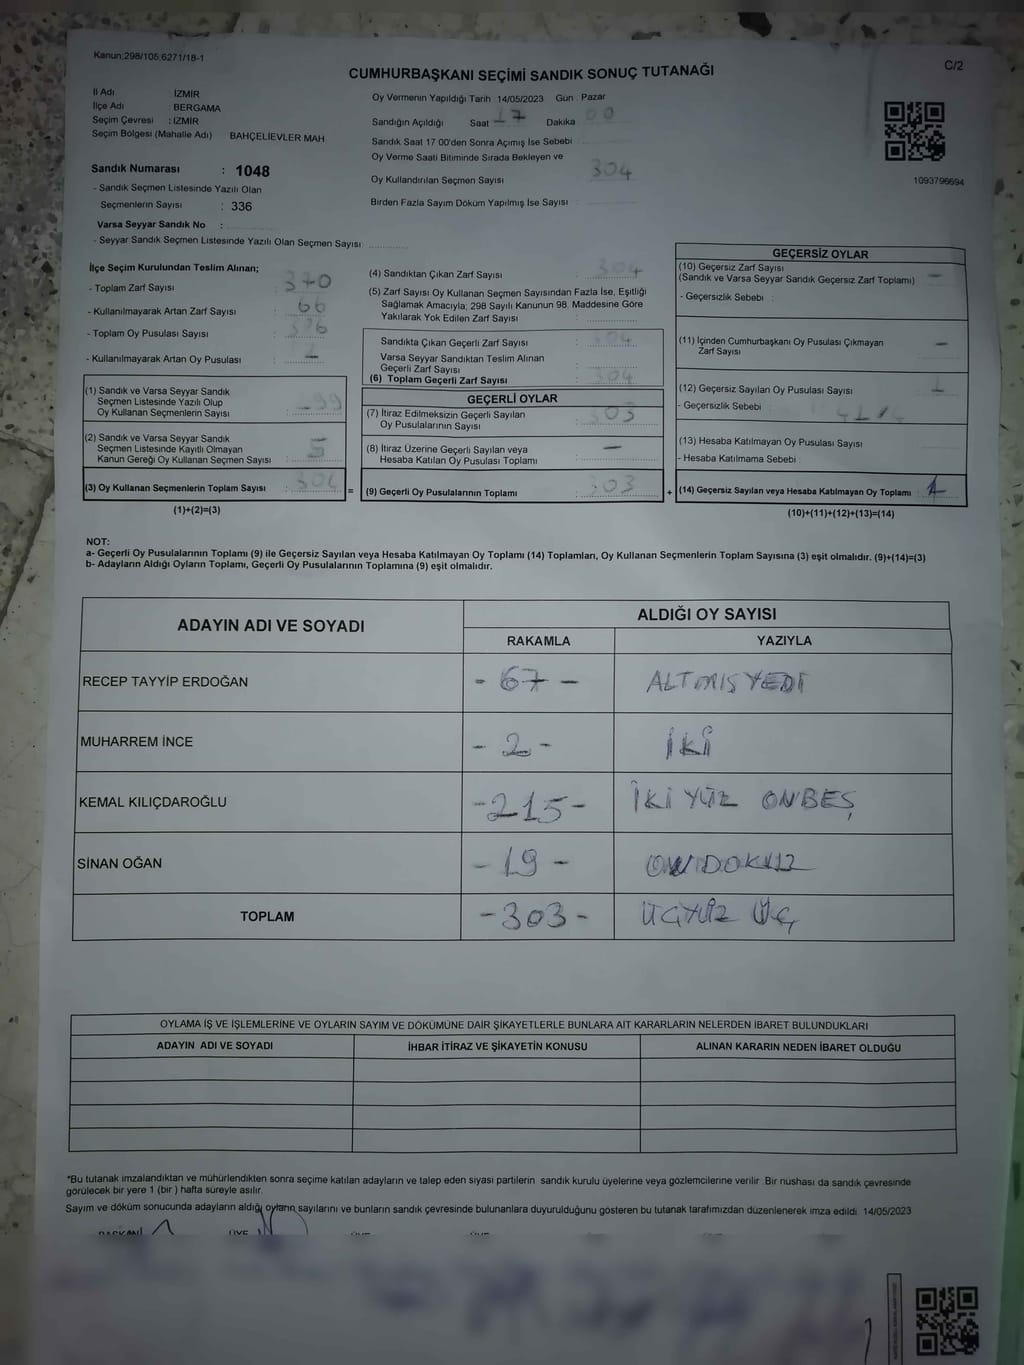 Kanun;298/105,6271/18-1
C/2
CUMHURBAŞKANI SEÇİMİ SANDIK SONUÇ TUTANAĞI
İl Adı İZMİR
İlçe Adı BERGAMA
Seçim Çevresi : İZMİR
Seçim Bölgesi (Mahalle Adı) BAHÇELİEVLER MAH
Sandık Numarası : 1048
- Sandık Seçmen Listesinde Yazılı Olan
Seçmenlerin Sayısı : 336
Varsa Seyyar Sandık No :
- Seyyar Sandık Seçmen Listesinde Yazılı Olan Seçmen Sayısı:
Oy Vermenin Yapıldığı Tarih 14/05/2023 Gün : Pazar
Sandığın Açıldığı Saat 17 Dakika 00
Sandık Saat 17 00'den Sonra Açımış İse Sebebi
Oy Verme Saati Bitiminde Sırada Bekleyen ve
Oy Kullandırılan Seçmen Sayısı 304
Birden Fazla Sayım Döküm Yapılmış İse Sayısı :
1093796694
İlçe Seçim Kurulundan Teslim Alınan;
- Toplam Zarf Sayısı : 370
- Kullanılmayarak Artan Zarf Sayısı : 66
- Toplam Oy Pusulası Sayısı :
- Kullanılmayarak Artan Oy Pusulası :
(1) Sandık ve Varsa Seyyar Sandık
Seçmen Listesinde Yazılı Olup
Oy Kullanan Seçmenlerin Sayısı :
(2) Sandık ve Varsa Seyyar Sandık
Seçmen Listesinde Kayıtlı Olmayan
Kanun Gereği Oy Kullanan Seçmen Sayısı : 5
(3) Oy Kullanan Seçmenlerin Toplam Sayısı : 304
(1)+(2)=(3)
(4) Sandıktan Çıkan Zarf Sayısı : 304
(5) Zarf Sayısı Oy Kullanan Seçmen Sayısından Fazla İse, Eşitliği
Sağlamak Amacıyla; 298 Sayılı Kanunun 98. Maddesine Göre
Yakılarak Yok Edilen Zarf Sayısı :
Sandıkta Çıkan Geçerli Zarf Sayısı : 304
Varsa Seyyar Sandıktan Teslim Alınan
Geçerli Zarf Sayısı :
(6) Toplam Geçerli Zarf Sayısı : 304
GEÇERLİ OYLAR
(7) İtiraz Edilmeksizin Geçerli Sayılan
Oy Pusulalarının Sayısı : 303
(8) İtiraz Üzerine Geçerli Sayılan veya
Hesaba Katılan Oy Pusulası Toplamı : -
= (9) Geçerli Oy Pusulalarının Toplamı : 303
GEÇERSİZ OYLAR
(10) Geçersiz Zarf Sayısı
(Sandık ve Varsa Seyyar Sandık Geçersiz Zarf Toplamı) : -
- Geçersizlik Sebebi :
(11) İçinden Cumhurbaşkanı Oy Pusulası Çıkmayan
Zarf Sayısı : -
(12) Geçersiz Sayılan Oy Pusulası Sayısı : 1
- Geçersizlik Sebebi :
(13) Hesaba Katılmayan Oy Pusulası Sayısı :
- Hesaba Katılmama Sebebi :
+ (14) Geçersiz Sayılan veya Hesaba Katılmayan Oy Toplamı : 1
(10)+(11)+(12)+(13)=(14)
NOT:
a- Geçerli Oy Pusulalarının Toplamı (9) ile Geçersiz Sayılan veya Hesaba Katılmayan Oy Toplamı (14) Toplamları, Oy Kullanan Seçmenlerin Toplam Sayısına (3) eşit olmalıdır. (9)+(14)=(3)
b- Adayların Aldığı Oyların Toplamı, Geçerli Oy Pusulalarının Toplamına (9) eşit olmalıdır.
ADAYIN ADI VE SOYADI ALDIĞI OY SAYISI
RAKAMLA YAZIYLA
RECEP TAYYİP ERDOĞAN - 67 - ALTMIŞ YEDİ
MUHARREM İNCE - 2 - İKİ
KEMAL KILIÇDAROĞLU - 215 - İKİ YÜZ ONBEŞ
SİNAN OĞAN - 19 - ONDOKUZ
TOPLAM - 303 - ÜÇYÜZ ÜÇ
OYLAMA İŞ VE İŞLEMLERİNE VE OYLARIN SAYIM VE DÖKÜMÜNE DAİR ŞİKAYETLERLE BUNLARA AİT KARARLARIN NELERDEN İBARET BULUNDUKLARI
ADAYIN ADI VE SOYADI İHBAR İTİRAZ VE ŞİKAYETİN KONUSU ALINAN KARARIN NEDEN İBARET OLDUĞU
*Bu tutanak imzalandıktan ve mühürlendikten sonra seçime katılan adayların ve talep eden siyasi partilerin sandık kurulu üyelerine veya gözlemcilerine verilir. Bir nüshası da sandık çevresinde
görülecek bir yere 1 (bir ) hafta süreyle asılır.
Sayım ve döküm sonucunda adayların aldığı oyların sayılarını ve bunların sandık çevresinde bulunanlara duyurulduğunu gösteren bu tutanak tarafımızdan düzenlenerek imza edildi. 14/05/2023
BAŞKAN ÜYE ÜYE ÜYE